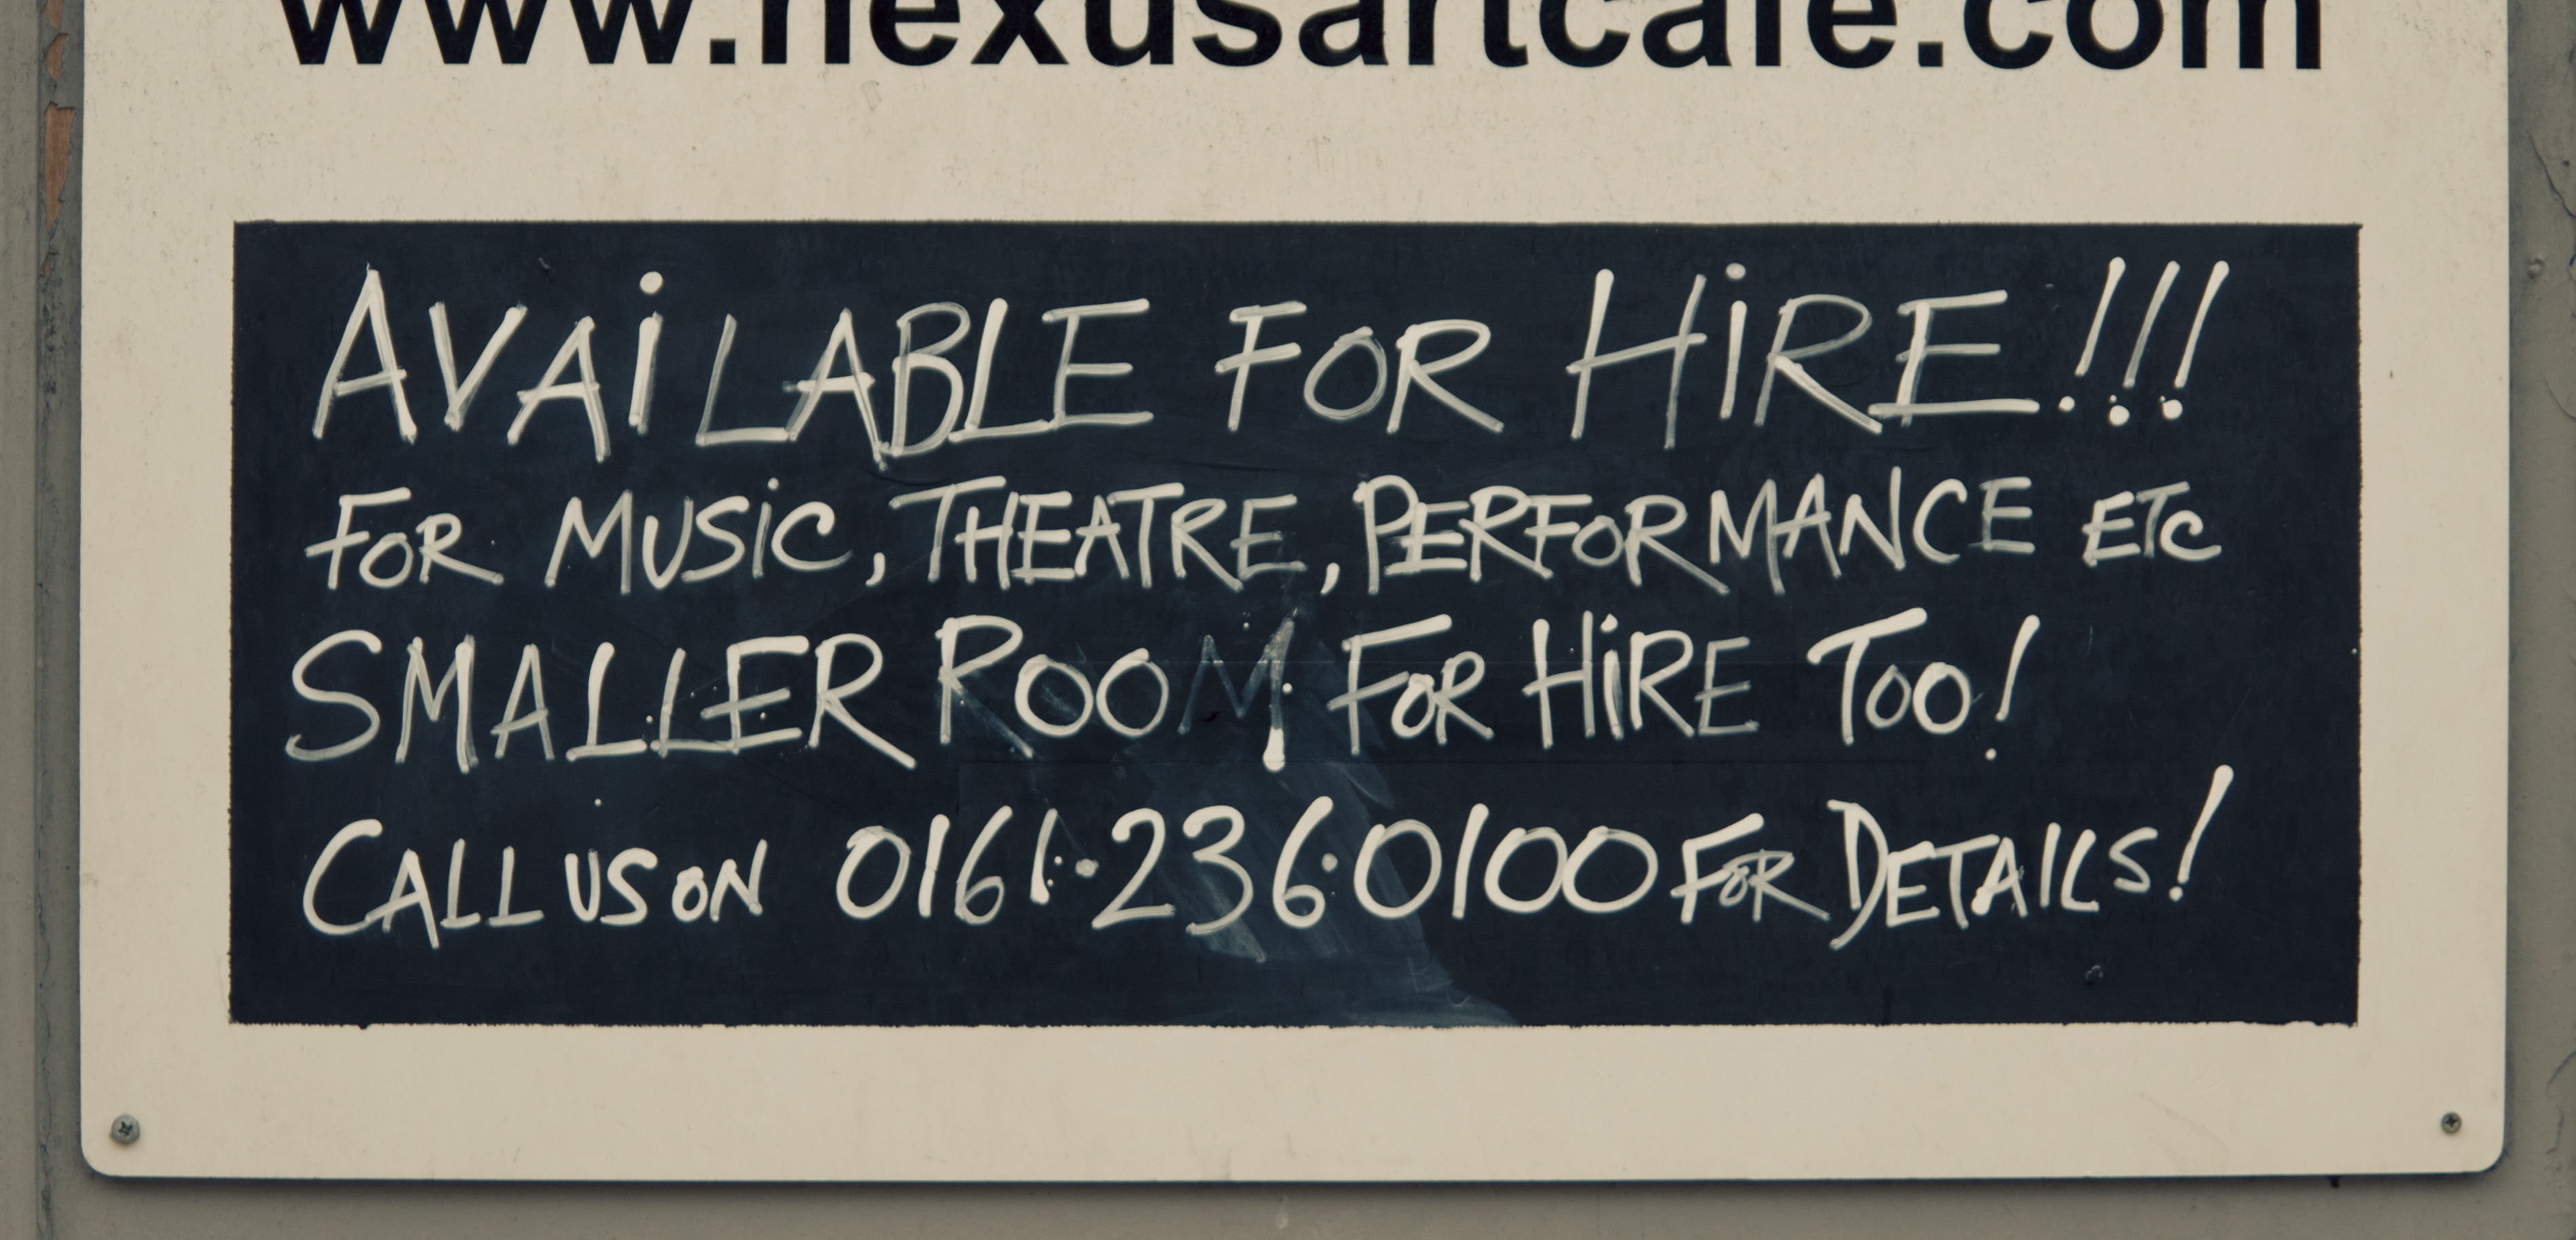 www.nexusartcafe.com
AVAiLABLE FOR HiRE!!!
FOR MUSiC, THEATRE, PERFORMANCE ETC
SMALLER ROOM FOR HiRE TOO!
CALL US ON 0161·236·0100 FOR DETAILS!